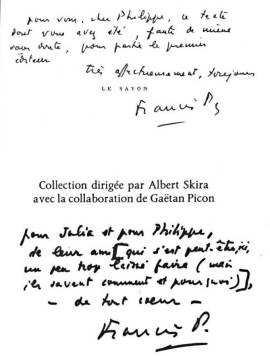 pour vous, cher Philippe, ce texte
dont vous avez été, faute de mieux
sans doute, pour partie le premier
très affectueusement, toujours
LE SAVON
Francis P.
Collection dirigée par Albert Skira
avec la collaboration de Gaëtan Picon
pour Julia et pour Philippe,
de leur ami [qui s'est peut-être, ici,
un peu trop laissé faire (mais
ils savent comment et pourquoi)],
– de tout cœur –
Francis P.